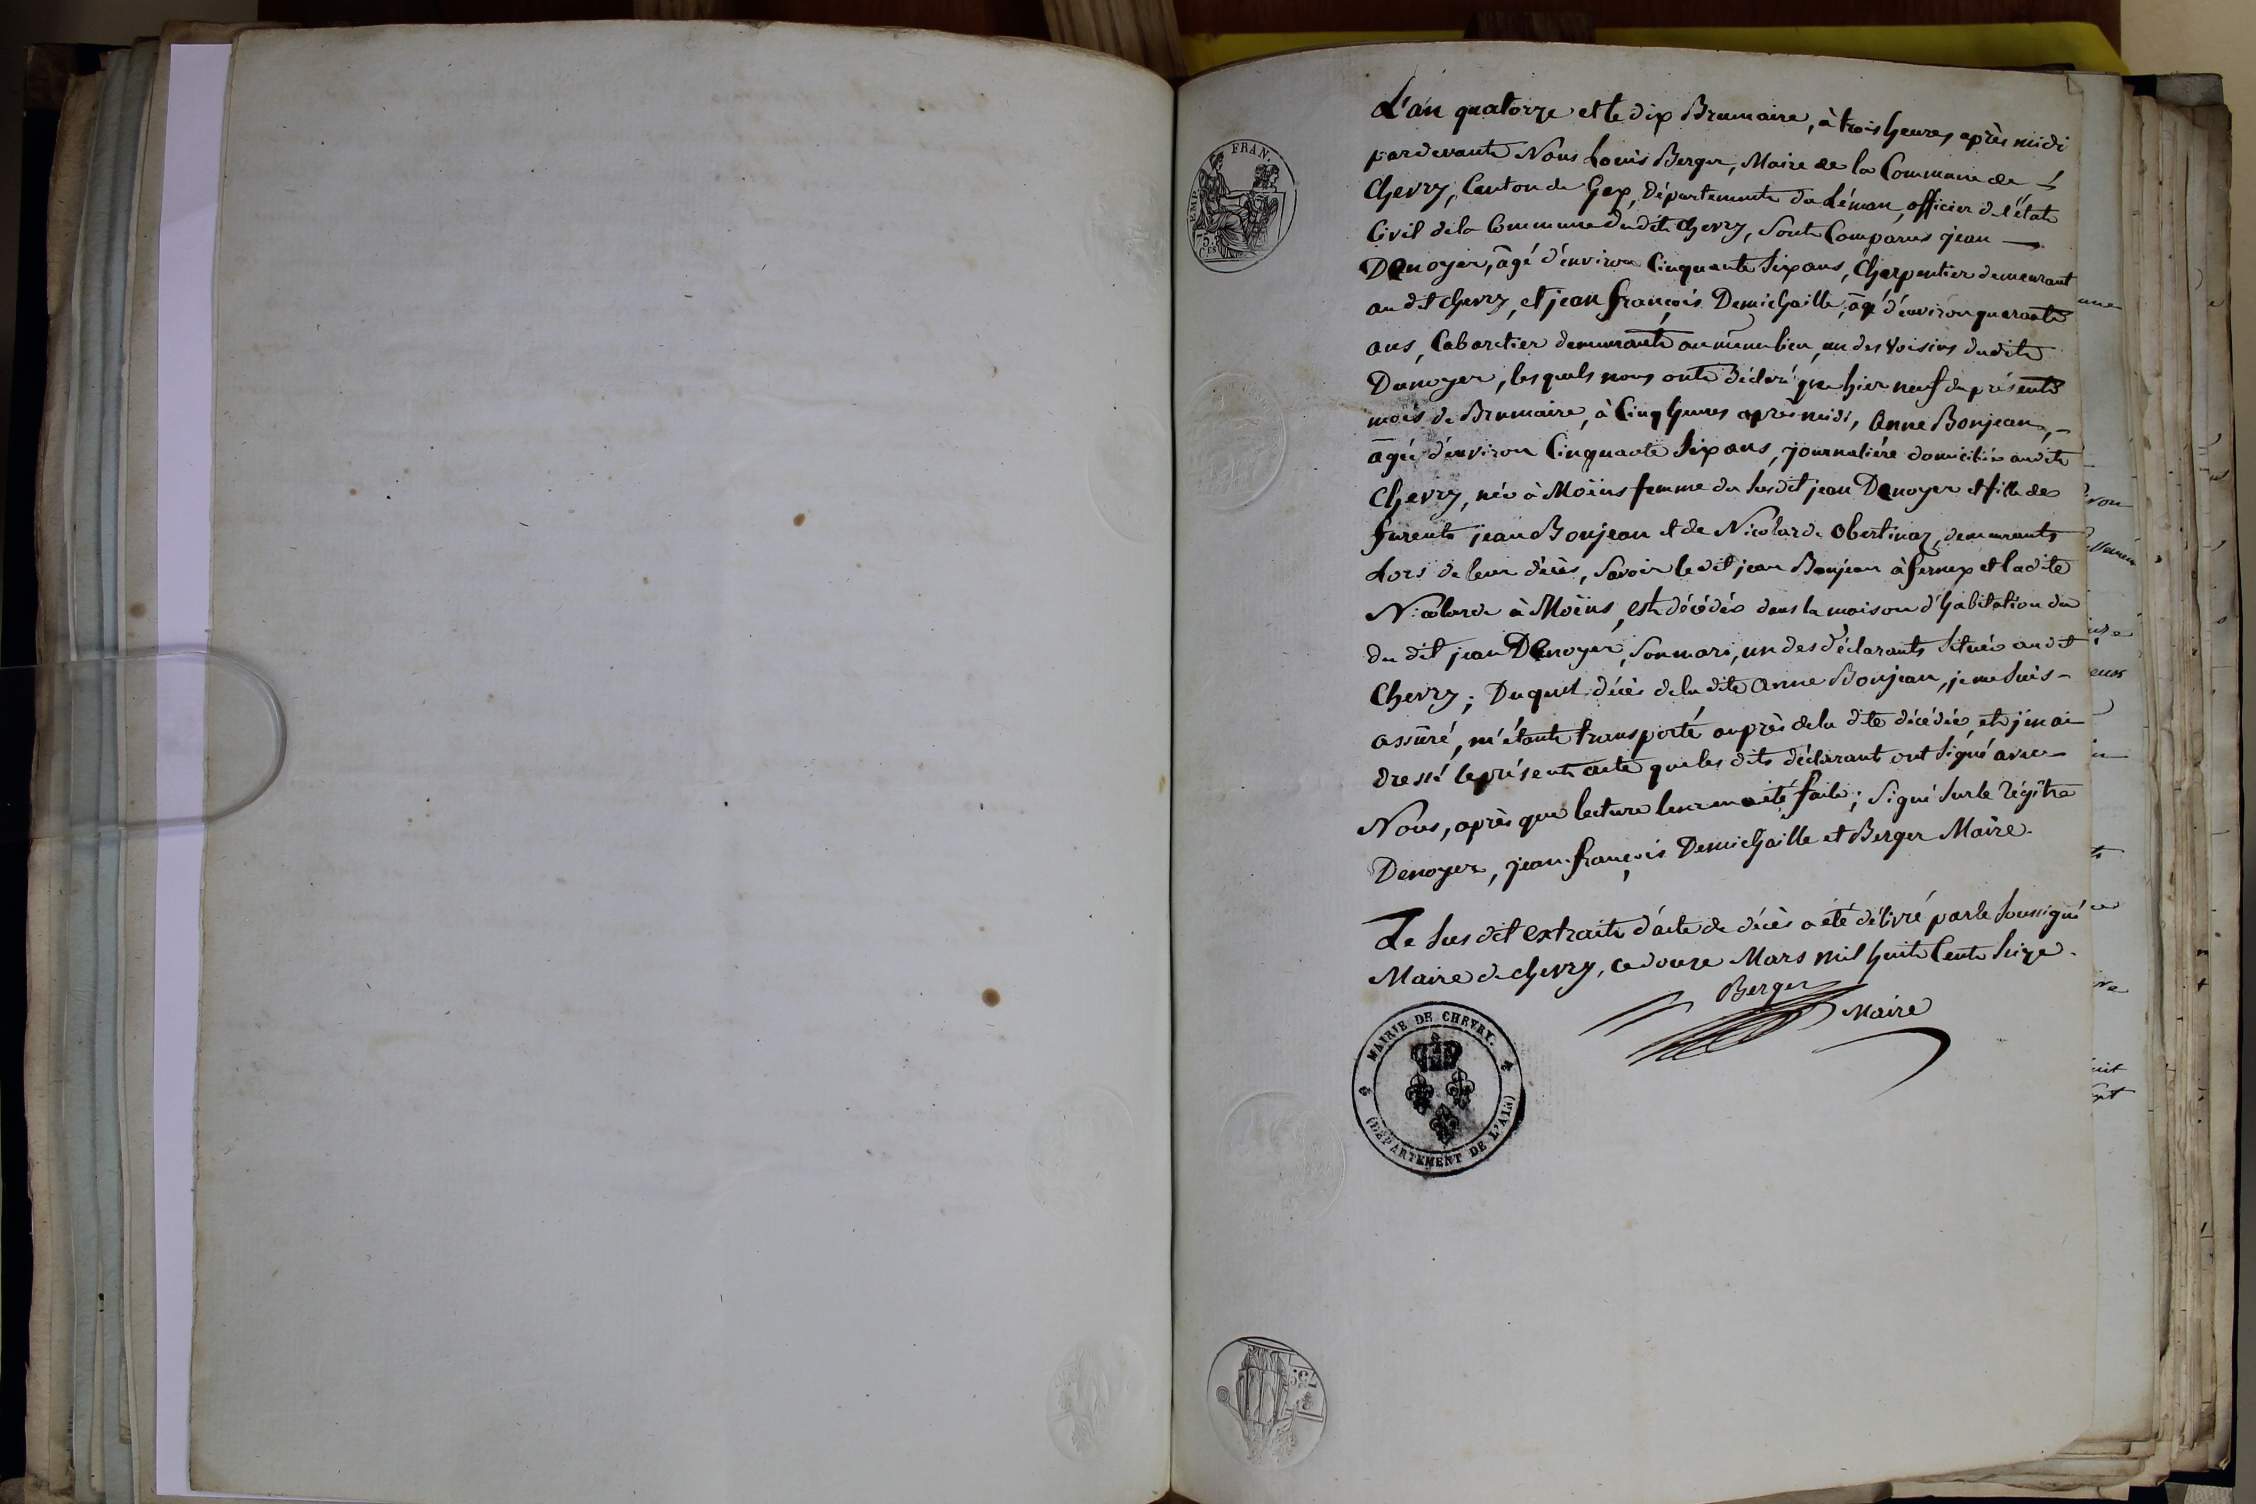 EMP. FRAN.
75 CES
L'an quatorze et le dix Brumaire, à trois heures après midi
pardevant Nous Louis Berger, Maire de la Commune de
Chevry, Canton de Gex, Département du Léman, officier de l'état
Civil de la Commune dudit Chevry, Sont Comparus jean —
Denoyer, âgé d'environ Cinquante Six ans, Charpentier demeurant
au dit Chevry, et jean françois Demichaille, âgé d'environ quarante
ans, Cabaretier demeurant au même lieu, un des Voisins dudit
Denoyer, lesquels nous ont déclaré que hier neuf du présent
mois de Brumaire, à Cinq heures après midi, Anne Bonjean, —
âgée d'environ Cinquante Six ans, journalière domiciliée audit
Chevry, née à Moëns femme du Susdit jean Denoyer et fille de
furent jean Bonjean et de Nicolarde Obertinaz, demeurants
Lors de leur décès, Savoir le dit jean Bonjean à fernex et la dite
Nicolarde à Moëns, est décédée dans la maison d'habitation du
du dit jean Denoyer, Son mari, un des déclarants Située audit
Chevry; Duquel décès de la dite Anne Bonjean, je me Suis —
assuré, m'étant transporté auprès de la dite décédée et j'en ai
dressé le présent acte que les dits déclarant ont Signé avec —
Nous, après que lecture leur en a été faite; Signé Sur le régitre
Denoyer, jean françois Demichaille et Berger Maire.
Le Sus dit extrait d'acte de décès a été délivré par le Soussigné
Maire de Chevry, ce douze Mars mil huit Cent Seize.
Berger
Maire
MAIRIE DE CHEVRY.
(DÉPARTEMENT DE L'AIN)